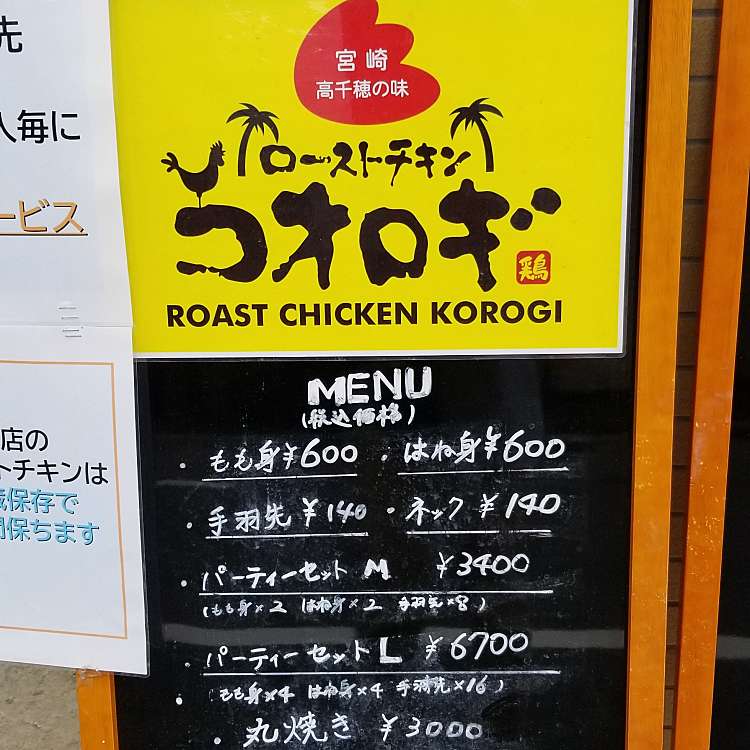 先
人毎に
ービス
店の
トチキンは
蔵保存で
間保ちます
宮崎
高千穂の味
ローストチキン
コオロギ
鶏
ROAST CHICKEN KOROGI
MENU
(税込価格)
・もも身¥600 ・はね身¥600
・手羽先 ¥140 ・ネック ¥140
・パーティーセット M ¥3400
(もも身×2 はね身×2 手羽先×8)
・パーティーセット L ¥6700
(もも身×4 はね身×4 手羽先×16)
・丸焼き ¥3000